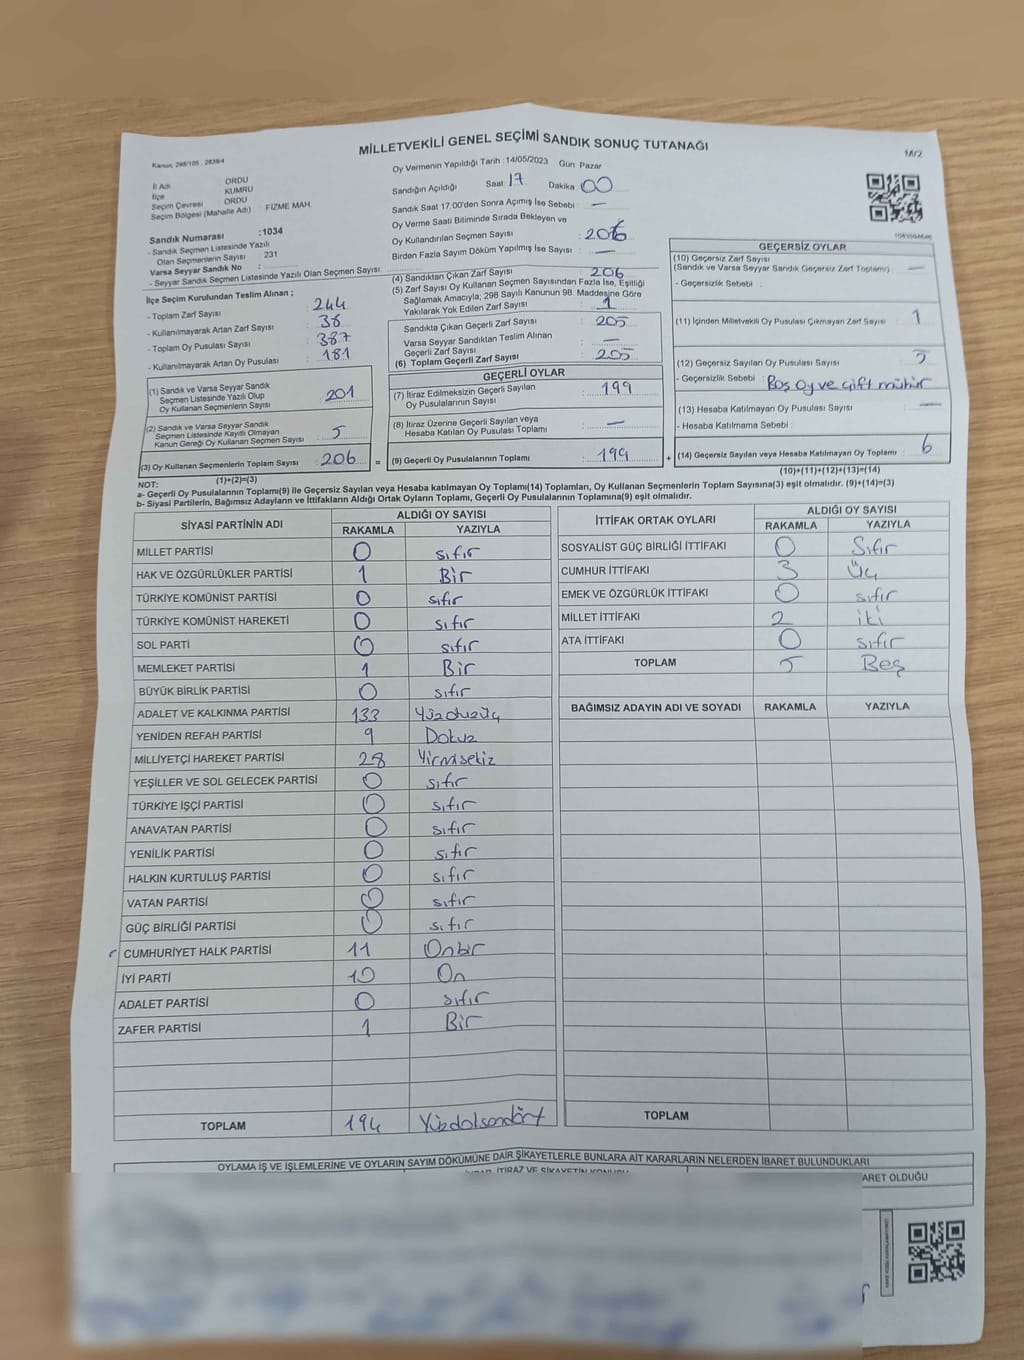 MİLLETVEKİLİ GENEL SEÇİMİ SANDIK SONUÇ TUTANAĞI
M/2
Kanun: 298/105 , 2839/4
İl Adı ORDU
İlçe KUMRU
Seçim Çevresi ORDU
Seçim Bölgesi (Mahalle Adı) : FİZME MAH.
Sandık Numarası :1034
- Sandık Seçmen Listesinde Yazılı
Olan Seçmenlerin Sayısı 231
Varsa Seyyar Sandık No :
- Seyyar Sandık Seçmen Listesinde Yazılı Olan Seçmen Sayısı:
Oy Vermenin Yapıldığı Tarih : 14/05/2023 Gün: Pazar
Sandığın Açıldığı Saat 17 Dakika 00
Sandık Saat 17:00'den Sonra Açılmış İse Sebebi : —
Oy Verme Saati Bitiminde Sırada Bekleyen ve
Oy Kullandırılan Seçmen Sayısı : 206
Birden Fazla Sayım Döküm Yapılmış İse Sayısı : —
İlçe Seçim Kurulundan Teslim Alınan ;
- Toplam Zarf Sayısı : 244
- Kullanılmayarak Artan Zarf Sayısı : 38
- Toplam Oy Pusulası Sayısı : 387
- Kullanılmayarak Artan Oy Pusulası : 181
(1) Sandık ve Varsa Seyyar Sandık
Seçmen Listesinde Yazılı Olup
Oy Kullanan Seçmenlerin Sayısı : 201
(2) Sandık ve Varsa Seyyar Sandık
Seçmen Listesinde Kayıtlı Olmayan
Kanun Gereği Oy Kullanan Seçmen Sayısı : 5
(3) Oy Kullanan Seçmenlerin Toplam Sayısı : 206
(1)+(2)=(3)
(4) Sandıktan Çıkan Zarf Sayısı : 206
(5) Zarf Sayısı Oy Kullanan Seçmen Sayısından Fazla İse, Eşitliği
Sağlamak Amacıyla; 298 Sayılı Kanunun 98. Maddesine Göre
Yakılarak Yok Edilen Zarf Sayısı : 1
Sandıkta Çıkan Geçerli Zarf Sayısı : 205
Varsa Seyyar Sandıktan Teslim Alınan
Geçerli Zarf Sayısı : —
(6) Toplam Geçerli Zarf Sayısı : 205
GEÇERLİ OYLAR
(7) İtiraz Edilmeksizin Geçerli Sayılan
Oy Pusulalarının Sayısı : 199
(8) İtiraz Üzerine Geçerli Sayılan veya
Hesaba Katılan Oy Pusulası Toplamı : —
= (9) Geçerli Oy Pusulalarının Toplamı : 199 +
GEÇERSİZ OYLAR
(10) Geçersiz Zarf Sayısı
(Sandık ve Varsa Seyyar Sandık Geçersiz Zarf Toplamı) : —
- Geçersizlik Sebebi :
(11) İçinden Milletvekili Oy Pusulası Çıkmayan Zarf Sayısı : 1
(12) Geçersiz Sayılan Oy Pusulası Sayısı : 5
- Geçersizlik Sebebi : Boş oy ve çift mühür
(13) Hesaba Katılmayan Oy Pusulası Sayısı : —
- Hesaba Katılmama Sebebi :
(14) Geçersiz Sayılan veya Hesaba Katılmayan Oy Toplamı : 6
(10)+(11)+(12)+(13)=(14)
NOT:
a- Geçerli Oy Pusulalarının Toplamı(9) ile Geçersiz Sayılan veya Hesaba katılmayan Oy Toplamı(14) Toplamları, Oy Kullanan Seçmenlerin Toplam Sayısına(3) eşit olmalıdır. (9)+(14)=(3)
b- Siyasi Partilerin, Bağımsız Adayların ve İttifakların Aldığı Ortak Oyların Toplamı, Geçerli Oy Pusulalarının Toplamına(9) eşit olmalıdır.
SİYASİ PARTİNİN ADI ALDIĞI OY SAYISI
RAKAMLA YAZIYLA
MİLLET PARTİSİ 0 sıfır
HAK VE ÖZGÜRLÜKLER PARTİSİ 1 Bir
TÜRKİYE KOMÜNİST PARTİSİ 0 sıfır
TÜRKİYE KOMÜNİST HAREKETİ 0 sıfır
SOL PARTİ 0 sıfır
MEMLEKET PARTİSİ 1 Bir
BÜYÜK BİRLİK PARTİSİ 0 sıfır
ADALET VE KALKINMA PARTİSİ 133 Yüzotuzüç
YENİDEN REFAH PARTİSİ 9 Dokuz
MİLLİYETÇİ HAREKET PARTİSİ 28 Yirmisekiz
YEŞİLLER VE SOL GELECEK PARTİSİ 0 sıfır
TÜRKİYE İŞÇİ PARTİSİ 0 sıfır
ANAVATAN PARTİSİ 0 sıfır
YENİLİK PARTİSİ 0 sıfır
HALKIN KURTULUŞ PARTİSİ 0 sıfır
VATAN PARTİSİ 0 sıfır
GÜÇ BİRLİĞİ PARTİSİ 0 sıfır
CUMHURİYET HALK PARTİSİ 11 Onbir
İYİ PARTİ 10 On
ADALET PARTİSİ 0 sıfır
ZAFER PARTİSİ 1 Bir
TOPLAM 194 Yüzdoksandört
İTTİFAK ORTAK OYLARI ALDIĞI OY SAYISI
RAKAMLA YAZIYLA
SOSYALİST GÜÇ BİRLİĞİ İTTİFAKI 0 Sıfır
CUMHUR İTTİFAKI 3 Üç
EMEK VE ÖZGÜRLÜK İTTİFAKI 0 sıfır
MİLLET İTTİFAKI 2 iki
ATA İTTİFAKI 0 sıfır
TOPLAM 5 Beş
BAĞIMSIZ ADAYIN ADI VE SOYADI RAKAMLA YAZIYLA
TOPLAM
OYLAMA İŞ VE İŞLEMLERİNE VE OYLARIN SAYIM DÖKÜMÜNE DAİR ŞİKAYETLERLE BUNLARA AİT KARARLARIN NELERDEN İBARET BULUNDUKLARI
İTİRAZ VE ŞİKAYETİN KONUSU
ARET OLDUĞU